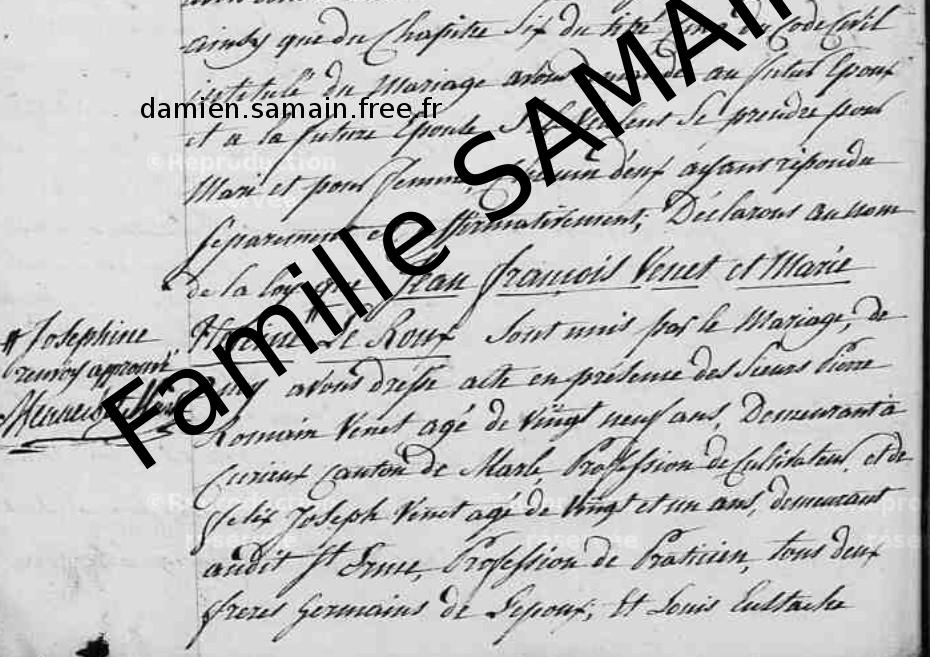 ainsy que du Chapitre Six du titre du Code Civil
intitulé du Mariage avons au futur Epoux
et a la future Epouse Se prendre pour
Mari et pour femme, d'eux ayant repondu
separement et affirmativement; Declarons au nom
de la loy que Jean françois Venet et Marie
# Le Roux sont unis par le Mariage, de
# Josephine
renvoy approuvé
quoy avons dressé acte en présence des Sieurs Pierre
Romain Venet agé de Vingt neuf ans, Demeurant à
Cuirieux Canton de Marle, Profession de Cultivateur, et de
felix Joseph Venet agé de Vingt et un ans, demeurant
audit St Erme, Profession de Praticien, tous deux
freres Germains de L'epoux; Et Louis Eustache
damien.samain.free.fr
Famille SAMAIN
©Reproduction
réservée
©Reproduction
réservée